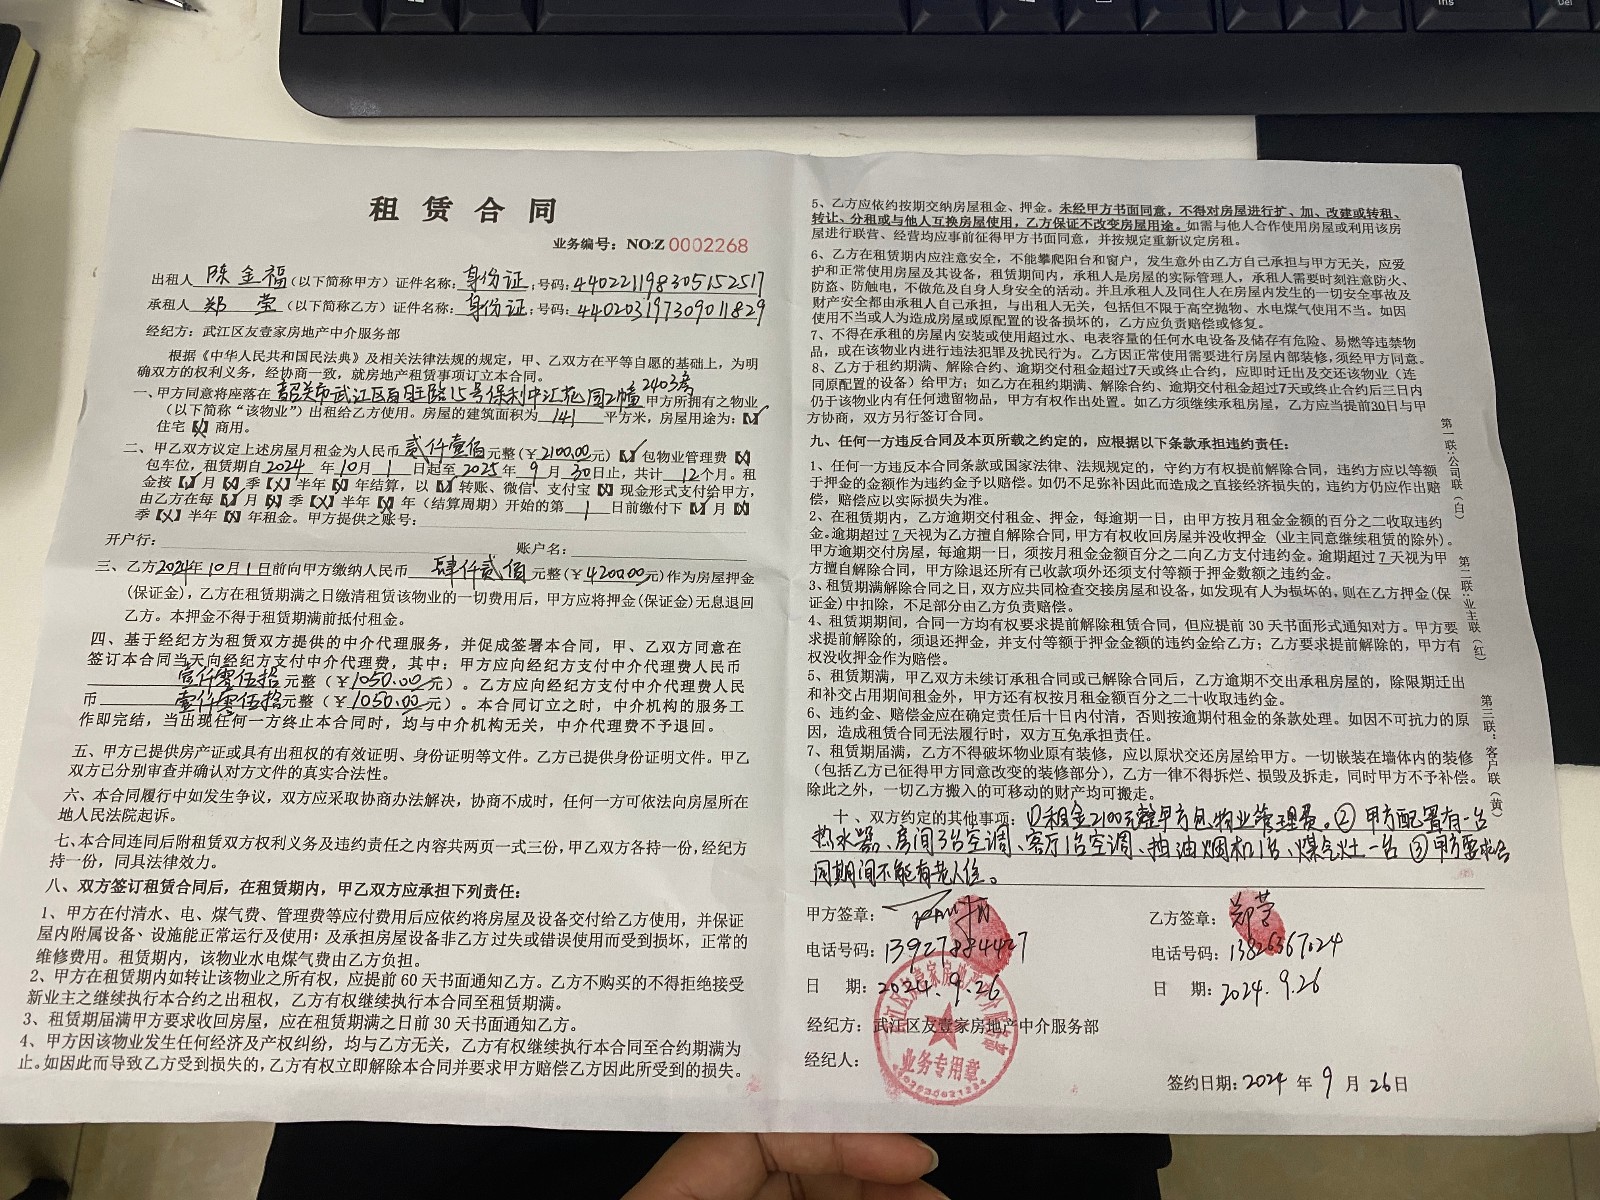 租赁合同
业务编号：NO:Z 0002268
出租人 陈金福（以下简称甲方）证件名称：身份证；号码：440221198305152517
承租人 郑莹（以下简称乙方）证件名称：身份证；号码：440203197309011829
经纪方：武江区友壹家房地产中介服务部
根据《中华人民共和国民法典》及相关法律法规的规定，甲、乙双方在平等自愿的基础上，为明
确双方的权利义务，经协商一致，就房地产租赁事项订立本合同。
一、甲方同意将座落在 韶关市武江区百旺路15号保利中汇花园2幢2403房 甲方所拥有之物业
（以下简称“该物业”）出租给乙方使用。房屋的建筑面积为 141 平方米，房屋用途为：【✓】
住宅【×】商用。
二、甲乙双方议定上述房屋月租金为人民币 贰仟壹佰 元整（¥2100.00元）【✓】包物业管理费【×】
包车位，租赁期自 2024 年 10 月 1 日起至 2025 年 9 月 30 日止，共计 12 个月。租
金按【✓】月【×】季【×】半年【×】年结算，以【✓】转账、微信、支付宝【×】现金形式支付给甲方，
由乙方在每【✓】月【×】季【×】半年【×】年（结算周期）开始的第 1 日前缴付下【✓】月【×】
季【×】半年【×】年租金。甲方提供之账号：
开户行： 账户名：
三、乙方 2024年10月1日 前向甲方缴纳人民币 肆仟贰佰 元整（¥4200.00元）作为房屋押金
（保证金），乙方在租赁期满之日缴清租赁该物业的一切费用后，甲方应将押金（保证金）无息退回
乙方。本押金不得于租赁期满前抵付租金。
四、基于经纪方为租赁双方提供的中介代理服务，并促成签署本合同，甲、乙双方同意在
签订本合同当天向经纪方支付中介代理费，其中：甲方应向经纪方支付中介代理费人民币
壹仟零伍拾元整（¥1050.00元）。乙方应向经纪方支付中介代理费人民
币 壹仟零伍拾元整（¥1050.00元）。本合同订立之时，中介机构的服务工
作即完结，当出现任何一方终止本合同时，均与中介机构无关，中介代理费不予退回。
五、甲方已提供房产证或具有出租权的有效证明、身份证明等文件。乙方已提供身份证明文件。甲乙
双方已分别审查并确认对方文件的真实合法性。
六、本合同履行中如发生争议，双方应采取协商办法解决，协商不成时，任何一方可依法向房屋所在
地人民法院起诉。
七、本合同连同后附租赁双方权利义务及违约责任之内容共两页一式三份，甲乙双方各持一份，经纪方
持一份，同具法律效力。
八、双方签订租赁合同后，在租赁期内，甲乙双方应承担下列责任：
1、甲方在付清水、电、煤气费、管理费等应付费用后应依约将房屋及设备交付给乙方使用，并保证
屋内附属设备、设施能正常运行及使用；及承担房屋设备非乙方过失或错误使用而受到损坏，正常的
维修费用。租赁期内，该物业水电煤气费由乙方负担。
2、甲方在租赁期内如转让该物业之所有权，应提前60天书面通知乙方。乙方不购买的不得拒绝接受
新业主之继续执行本合约之出租权，乙方有权继续执行本合同至租赁期满。
3、租赁期届满甲方要求收回房屋，应在租赁期满之日前30天书面通知乙方。
4、甲方因该物业发生任何经济及产权纠纷，均与乙方无关，乙方有权继续执行本合同至合约期满为
止。如因此而导致乙方受到损失的，乙方有权立即解除本合同并要求甲方赔偿乙方因此所受到的损失。
5、乙方应依约按期交纳房屋租金、押金。未经甲方书面同意，不得对房屋进行扩、加、改建或转租、
转让、分租或与他人互换房屋使用，乙方保证不改变房屋用途。如需与他人合作使用房屋或利用该房
屋进行联营、经营均应事前征得甲方书面同意，并按规定重新议定房租。
6、乙方在租赁期内应注意安全，不能攀爬阳台和窗户，发生意外由乙方自己承担与甲方无关，应爱
护和正常使用房屋及其设备，租赁期间内，承租人是房屋的实际管理人，承租人需要时刻注意防火、
防盗、防触电，不做危及自身人身安全的活动。并且承租人及同住人在房屋内发生的一切安全事故及
财产安全都由承租人自己承担，与出租人无关，包括但不限于高空抛物、水电煤气使用不当。如因
使用不当或人为造成房屋或原配置的设备损坏的，乙方应负责赔偿或修复。
7、不得在承租的房屋内安装或使用超过水、电表容量的任何水电设备及储存有危险、易燃等违禁物
品，或在该物业内进行违法犯罪及扰民行为。乙方因正常使用需要进行房屋内部装修，须经甲方同意。
8、乙方于租约期满、解除合约、逾期交付租金超过7天或终止合约，应即时迁出及交还该物业（连
同原配置的设备）给甲方；如乙方在租约期满、解除合约、逾期交付租金超过7天或终止合约后三日内
仍于该物业内有任何遗留物品，甲方有权作出处置。如乙方须继续承租房屋，乙方应当提前30日与甲
方协商，双方另行签订合同。
九、任何一方违反合同及本页所载之约定的，应根据以下条款承担违约责任：
1、任何一方违反本合同条款或国家法律、法规规定的，守约方有权提前解除合同，违约方应以等额
于押金的金额作为违约金予以赔偿。如仍不足弥补因此而造成之直接经济损失的，违约方仍应作出赔
偿，赔偿应以实际损失为准。
2、在租赁期内，乙方逾期交付租金、押金，每逾期一日，由甲方按月租金金额的百分之二收取违约
金。逾期超过7天视为乙方擅自解除合同，甲方有权收回房屋并没收押金（业主同意继续租赁的除外）。
甲方逾期交付房屋，每逾期一日，须按月租金金额百分之二向乙方支付违约金。逾期超过7天视为甲
方擅自解除合同，甲方除退还所有已收款项外还须支付等额于押金数额之违约金。
3、租赁期满解除合同之日，双方应共同检查交接房屋和设备，如发现有人为损坏的，则在乙方押金（保
证金）中扣除，不足部分由乙方负责赔偿。
4、租赁期期间，合同一方均有权要求提前解除租赁合同，但应提前30天书面形式通知对方。甲方要
求提前解除的，须退还押金，并支付等额于押金金额的违约金给乙方；乙方要求提前解除的，甲方有
权没收押金作为赔偿。
5、租赁期满，甲乙双方未续订承租合同或已解除合同后，乙方逾期不交出承租房屋的，除限期迁出
和补交占用期间租金外，甲方还有权按月租金额百分之二十收取违约金。
6、违约金、赔偿金应在确定责任后十日内付清，否则按逾期付租金的条款处理。如因不可抗力的原
因，造成租赁合同无法履行时，双方互免承担责任。
7、租赁期届满，乙方不得破坏物业原有装修，应以原状交还房屋给甲方。一切嵌装在墙体内的装修
（包括乙方已征得甲方同意改变的装修部分），乙方一律不得拆烂、损毁及拆走，同时甲方不予补偿。
除此之外，一切乙方搬入的可移动的财产均可搬走。
十、双方约定的其他事项：①租金2100元整甲方包物业管理费。②甲方配置有一台
热水器、房间3台空调、客厅1台空调、抽油烟机1台、煤气灶一台③甲方要求合
同期间不能有老人住。
甲方签章： 乙方签章：郑莹
电话号码：13927884427 电话号码：13826367024
日 期：2024.9.26 日 期：2024.9.26
经纪方：武江区友壹家房地产中介服务部
经纪人：
签约日期：2024 年 9 月 26 日
武江区友壹家房地产中介服务部
业务专用章
第一联：公司联（白）
第二联：业主联（红）
第三联：客户联（黄）
Ins
Del